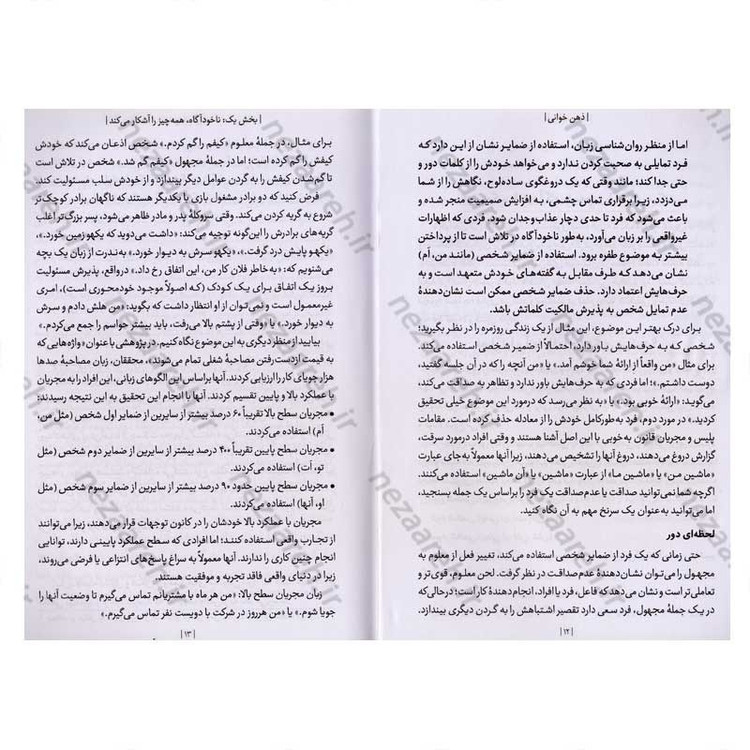 | ذهن خوانی |
اما از منظر روان‌شناسی زبان، استفاده از ضمایر نشان از این دارد که
فرد تمایلی به صحبت کردن ندارد و می‌خواهد خودش را از کلمات دور و
حتی جدا کند؛ مانند وقتی که یک دروغگوی ساده‌لوح، نگاهش را از شما
می‌دزدد، زیرا برقراری تماس چشمی، به افزایش صمیمیت منجر شده و
باعث می‌شود که فرد تا حدی دچار عذاب وجدان شود. فردی که اظهارات
غیرواقعی را بر زبان می‌آورد، به‌طور ناخودآگاه در تلاش است تا از پرداختن
بیشتر به موضوع طفره برود. استفاده از ضمایر شخصی (مانند من، اَم)
نشان می‌دهد که طرف مقابل به گفته‌های خودش متعهد است و به
حرف‌هایش اعتماد دارد. حذف ضمایر شخصی ممکن است نشان‌دهندهٔ
عدم تمایل شخص به پذیرش مالکیت کلماتش باشد.
برای درک بهتر این موضوع، این مثال از یک زندگی روزمره را در نظر بگیرید؛
شخصی که به حرف‌هایش باور دارد، احتمالاً از ضمیر شخصی استفاده می‌کند،
برای مثال «من واقعاً از ارائهٔ شما خوشم آمد.» یا «من آنچه را که در آن جلسه گفتید،
دوست داشتم.»؛ اما فردی که به حرف‌هایش باور ندارد و تظاهر به صداقت می‌کند،
می‌گوید: «ارائهٔ خوبی بود.» یا «به نظر می‌رسد که درمورد این موضوع خیلی تحقیق
کردید.» در مورد دوم، فرد به‌طور‌کامل خودش را از معادله حذف کرده است. مقامات
پلیس و مجریان قانون به‌خوبی با این اصل آشنا هستند و وقتی افراد درمورد سرقت،
گزارش دروغ می‌دهند، دروغ آنها را تشخیص می‌دهند، زیرا آنها معمولاً به‌جای عبارت
«ماشین من» یا «ماشین ما» از عبارت «ماشین» یا «آن ماشین» استفاده می‌کنند.
اگرچه شما نمی‌توانید صداقت یا عدم‌صداقت یک فرد را براساس یک جمله بسنجید،
اما می‌توانید به‌عنوان یک سرنخ مهم به آن نگاه کنید.
لحظه‌ای دور
حتی زمانی که یک فرد از ضمایر شخصی استفاده می‌کند، تغییر فعل از معلوم به
مجهول را می‌توان نشان‌دهندهٔ عدم‌صداقت در نظر گرفت. لحن معلوم، قوی‌تر و
تعاملی‌تر است و نشان می‌دهد که فاعل، فرد یا افراد، انجام‌دهندهٔ کار است؛ درحالی‌که
در یک جملهٔ مجهول، فرد سعی دارد تقصیر اشتباهش را به گردن دیگری بیندازد.
| ۱۲ |
| بخش یک: ناخودآگاه، همه‌چیز را آشکار می‌کند |
برای مثال، در جملهٔ معلوم «کیفم را گم کردم.» شخص اذعان می‌کند که خودش
کیفش را گم کرده است؛ اما در جملهٔ مجهول «کیفم گم شد.» شخص در تلاش است
تا گم‌شدن کیفش را به گردن عوامل دیگر بیندازد و از خودش سلب مسئولیت کند.
فرض کنید که دو برادر مشغول بازی با یکدیگر هستند که ناگهان برادر کوچک‌تر
شروع به گریه کردن می‌کند. وقتی سروکلهٔ پدر و مادر ظاهر می‌شود، پسر بزرگ‌تر اغلب
گریه‌های برادرش را این‌گونه توجیه می‌کند: «داشت می‌دوید که یکهو زمین خورد.»،
«یکهو پایش درد گرفت.»، «یکهو سرش به دیوار خورد.» به‌ندرت از زبان یک بچه
می‌شنویم که: «به‌خاطر فلان کار من، این اتفاق رخ داد.» درواقع، پذیرش مسئولیت
بروز یک اتفاق برای یک کودک (که اصولاً موجود خودمحوری است)، امری
غیرمعمول است و نمی‌توان از او انتظار داشت که بگوید: «من هلش دادم و سرش
به دیوار خورد.» یا «وقتی از پشتم بالا می‌رفت، باید بیشتر حواسم را جمع می‌کردم.»
بیایید از منظر دیگری به این موضوع نگاه کنیم. در پژوهشی با عنوان «واژه‌هایی که
به قیمت ازدست‌رفتن مصاحبهٔ شغلی تمام می‌شوند»، محققان، زبان مصاحبهٔ صدها
هزار جویای کار را ارزیابی کردند. آنها براساس این الگوهای زبانی، این افراد را به مجریان
با عملکرد بالا و پایین تقسیم کردند. آنها با انجام این تحقیق به این نتیجه رسیدند:
• مجریان سطح بالا تقریباً ۶۰ درصد بیشتر از سایرین از ضمایر اول شخص (مثل من،
اَم) استفاده می‌کردند.
• مجریان سطح پایین تقریباً ۴۰۰ درصد بیشتر از سایرین از ضمایر دوم شخص (مثل
تو، اَت) استفاده می‌کردند.
• مجریان سطح پایین حدود ۹۰ درصد بیشتر از سایرین از ضمایر سوم شخص (مثل
او، آنها) استفاده می‌کردند.
مجریان با عملکرد بالا خودشان را در کانون توجهات قرار می‌دهند، زیرا می‌توانند
از تجارب واقعی استفاده کنند؛ اما افرادی که سطح عملکرد پایینی دارند، توانایی
انجام چنین کاری را ندارند. آنها معمولاً به سراغ پاسخ‌های انتزاعی یا فرضی می‌روند،
زیرا در دنیای واقعی فاقد تجربه و موفقیت هستند.
زبان مجریان سطح بالا: «من هر ماه با مشتریانم تماس می‌گیرم تا وضعیت آنها را
جویا شوم.» یا «من هرروز در شرکت با دویست نفر تماس می‌گیرم.»
| ۱۳ |
nezaareh.ir